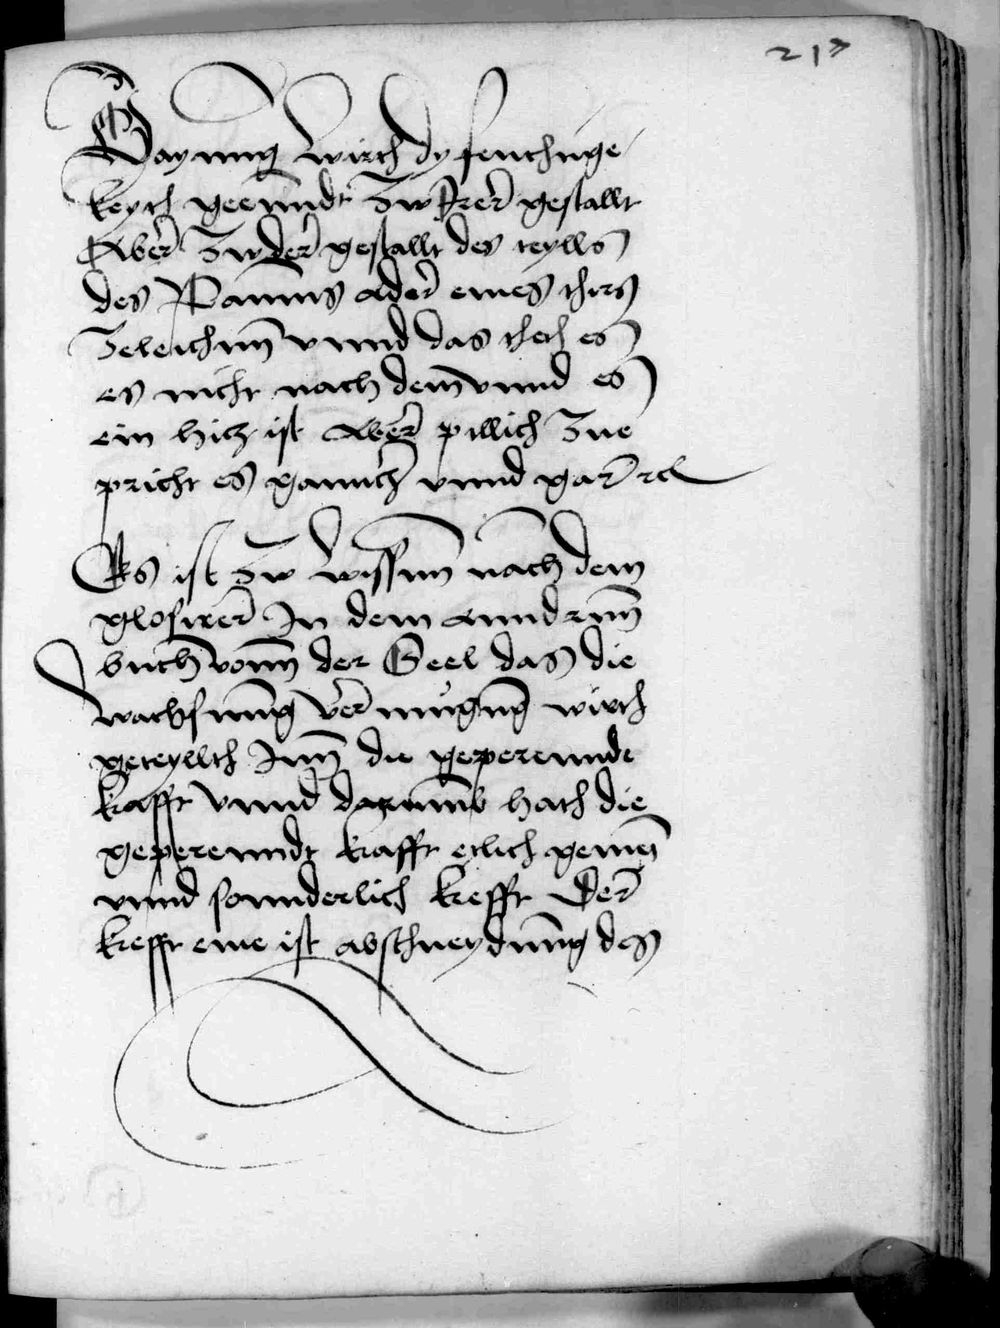 217
Saÿnung wirth dÿ fenchtige
keyth geenndt zw irer gestallt
Aber zw der gestallt des teylls
des Paums ader eines thirs
zeleichnn vnnd das theth es
es nicht nach dem vnnd es
ein hicz ist aber pillich zue
pricht es gannch vnnd gar rel
Es ist zw wissnn nach dem
glosirer In dem anndrnn
buch vonn der Seel das die
wachsung vermugnng wirth
geteyllth Inn die geperennde
krafft vnnd darumb hath die
geperenndt krafft etlich gemein
vnnd sonnderlich kreffte Der
krefft eine ist abschneydung des